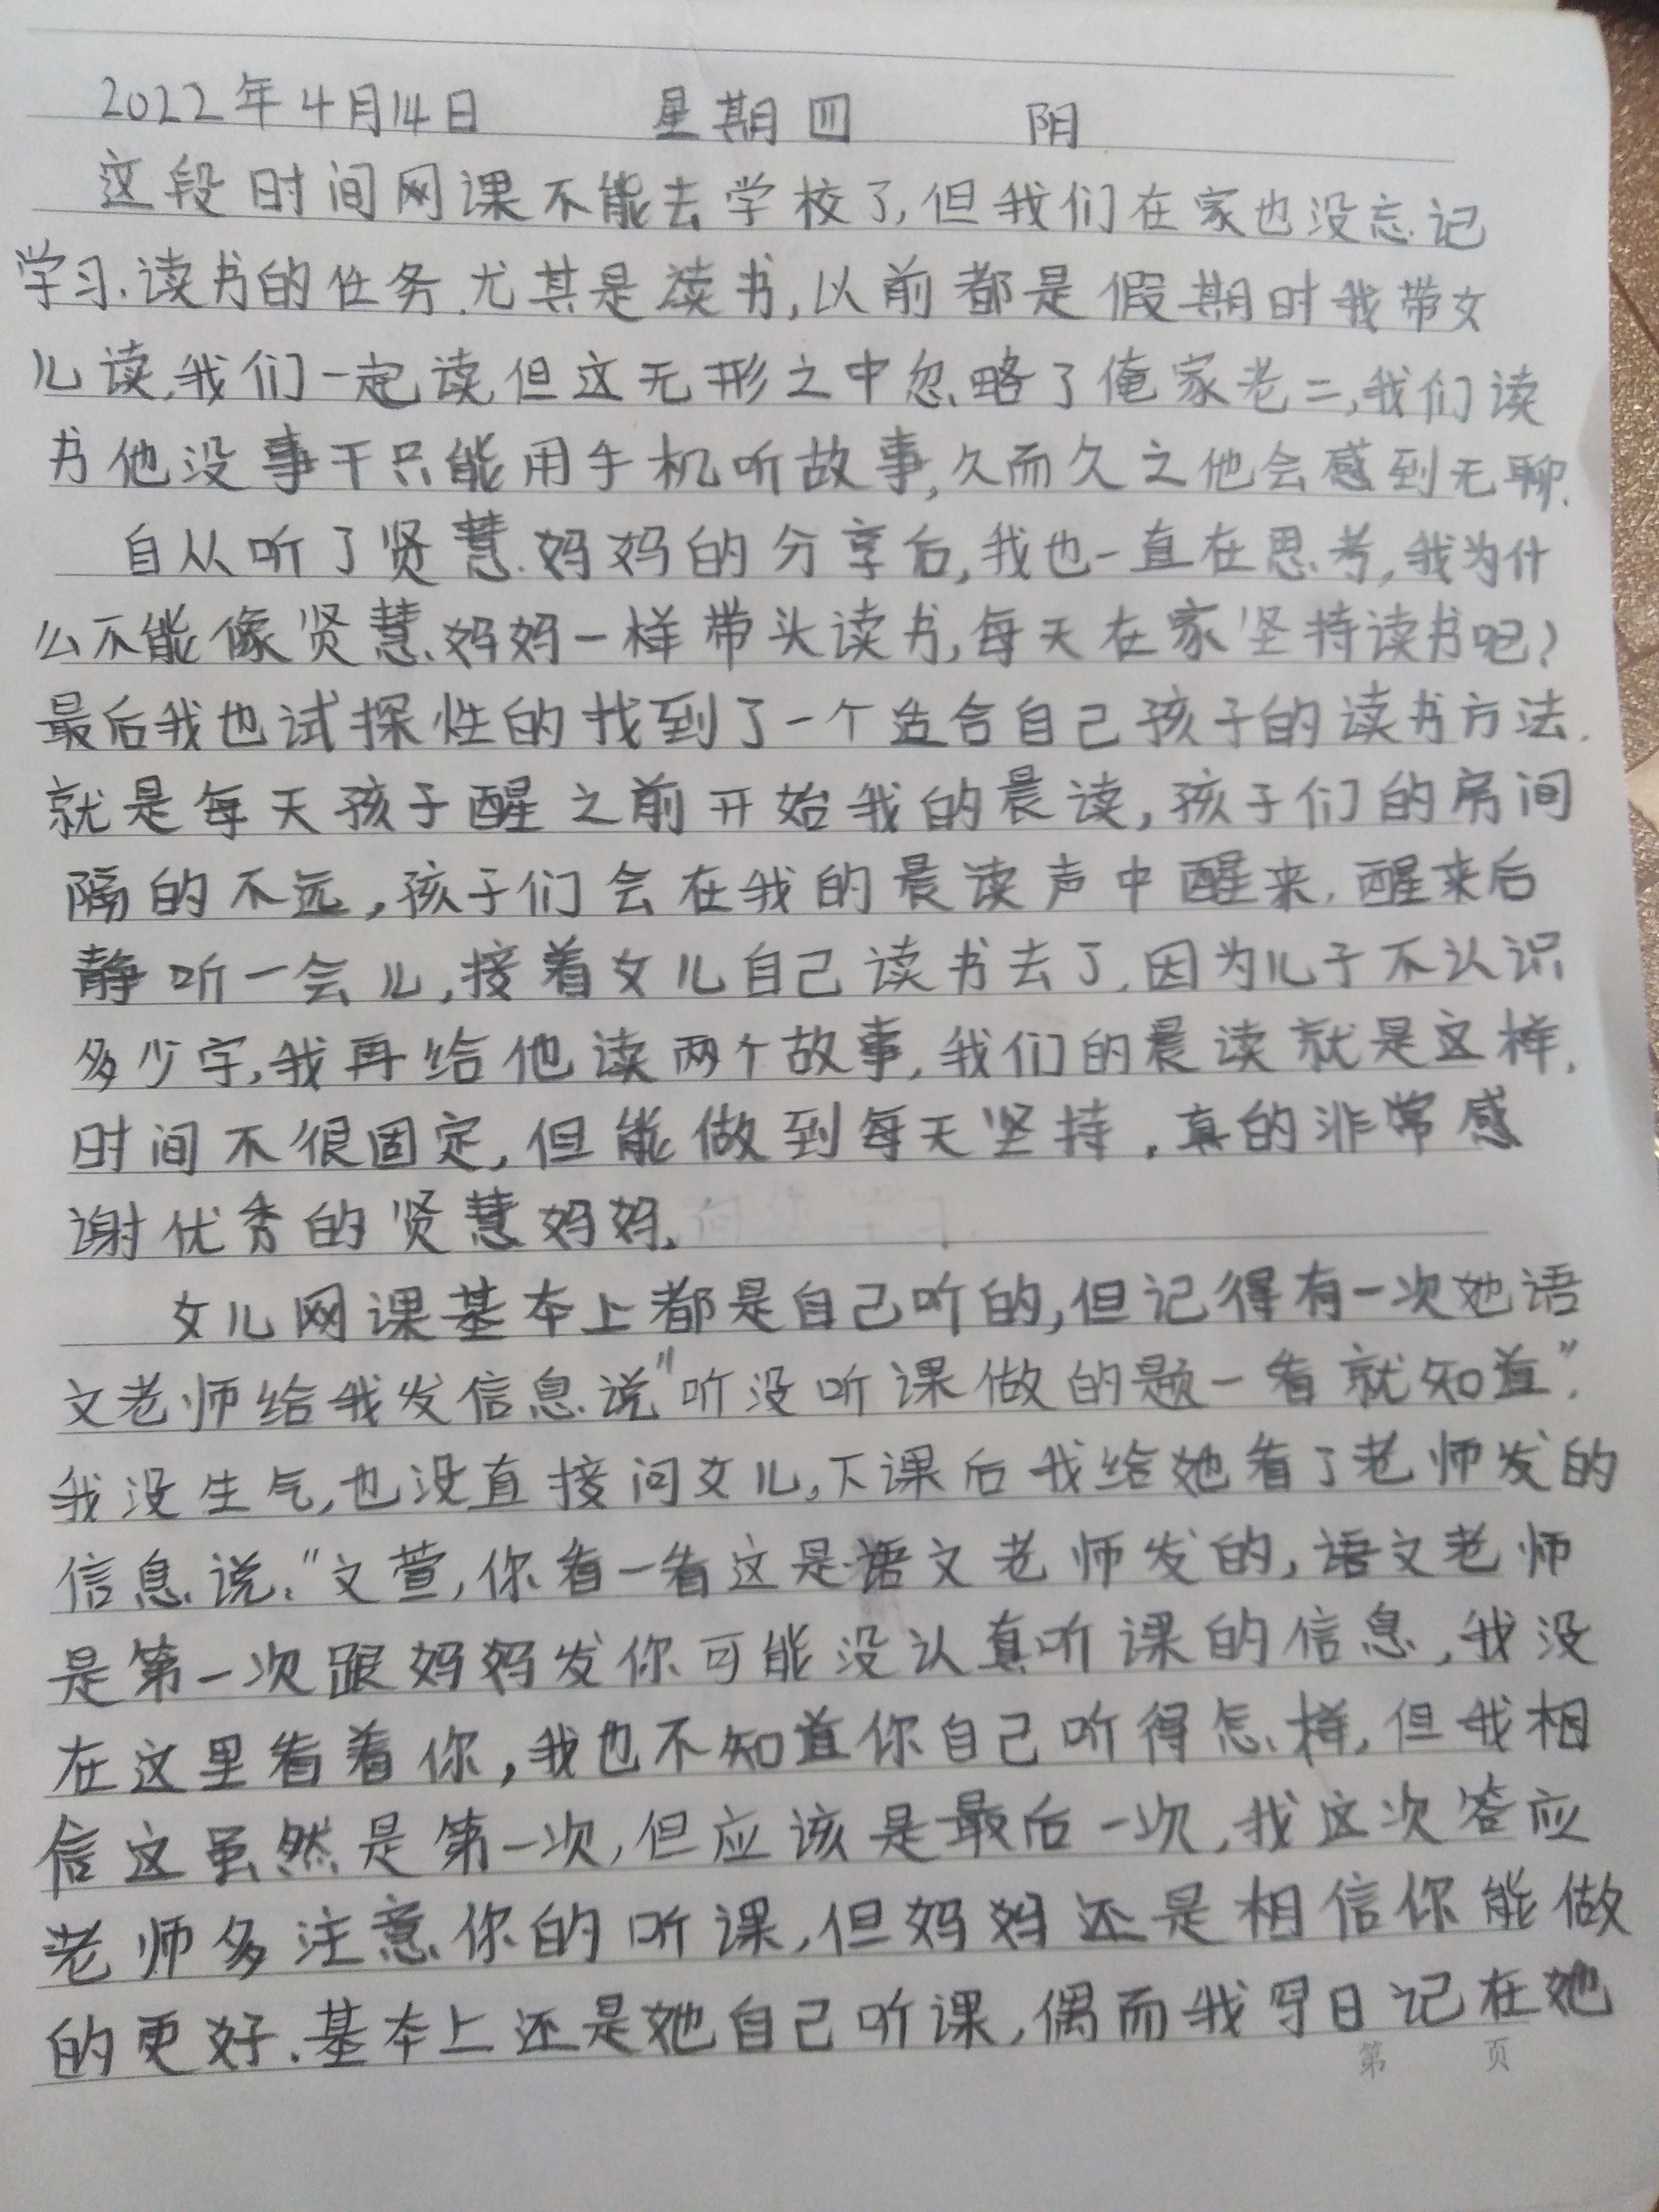 2022年4月14日 星期四 阴
这段时间网课不能去学校了,但我们在家也没忘记
学习.读书的任务.尤其是读书,以前都是假期时我带女
儿读,我们一起读,但这无形之中忽略了俺家老二,我们读
书他没事干只能用手机听故事,久而久之他会感到无聊.
自从听了贤慧妈妈的分享后,我也一直在思考,我为什
么不能像贤慧妈妈一样带头读书,每天在家坚持读书呢?
最后我也试探性的找到了一个适合自己孩子的读书方法.
就是每天孩子醒之前开始我的晨读,孩子们的房间
隔的不远,孩子们会在我的晨读声中醒来.醒来后
静听一会儿,接着女儿自己读书去了.因为儿子不认识
多少字,我再给他读两个故事,我们的晨读就是这样.
时间不很固定,但能做到每天坚持.真的非常感
谢优秀的贤慧妈妈.
女儿网课基本上都是自己听的,但记得有一次她语
文老师给我发信息说"听没听课做的题一看就知道".
我没生气,也没直接问女儿,下课后我给她看了老师发的
信息说:"文萱,你看一看这是语文老师发的,语文老师
是第一次跟妈妈发你可能没认真听课的信息,我没
在这里看着你,我也不知道你自己听得怎样,但我相
信这虽然是第一次,但应该是最后一次,我这次答应
老师多注意你的听课,但妈妈还是相信你能做
的更好.基本上还是她自己听课,偶而我写日记在她
第 页